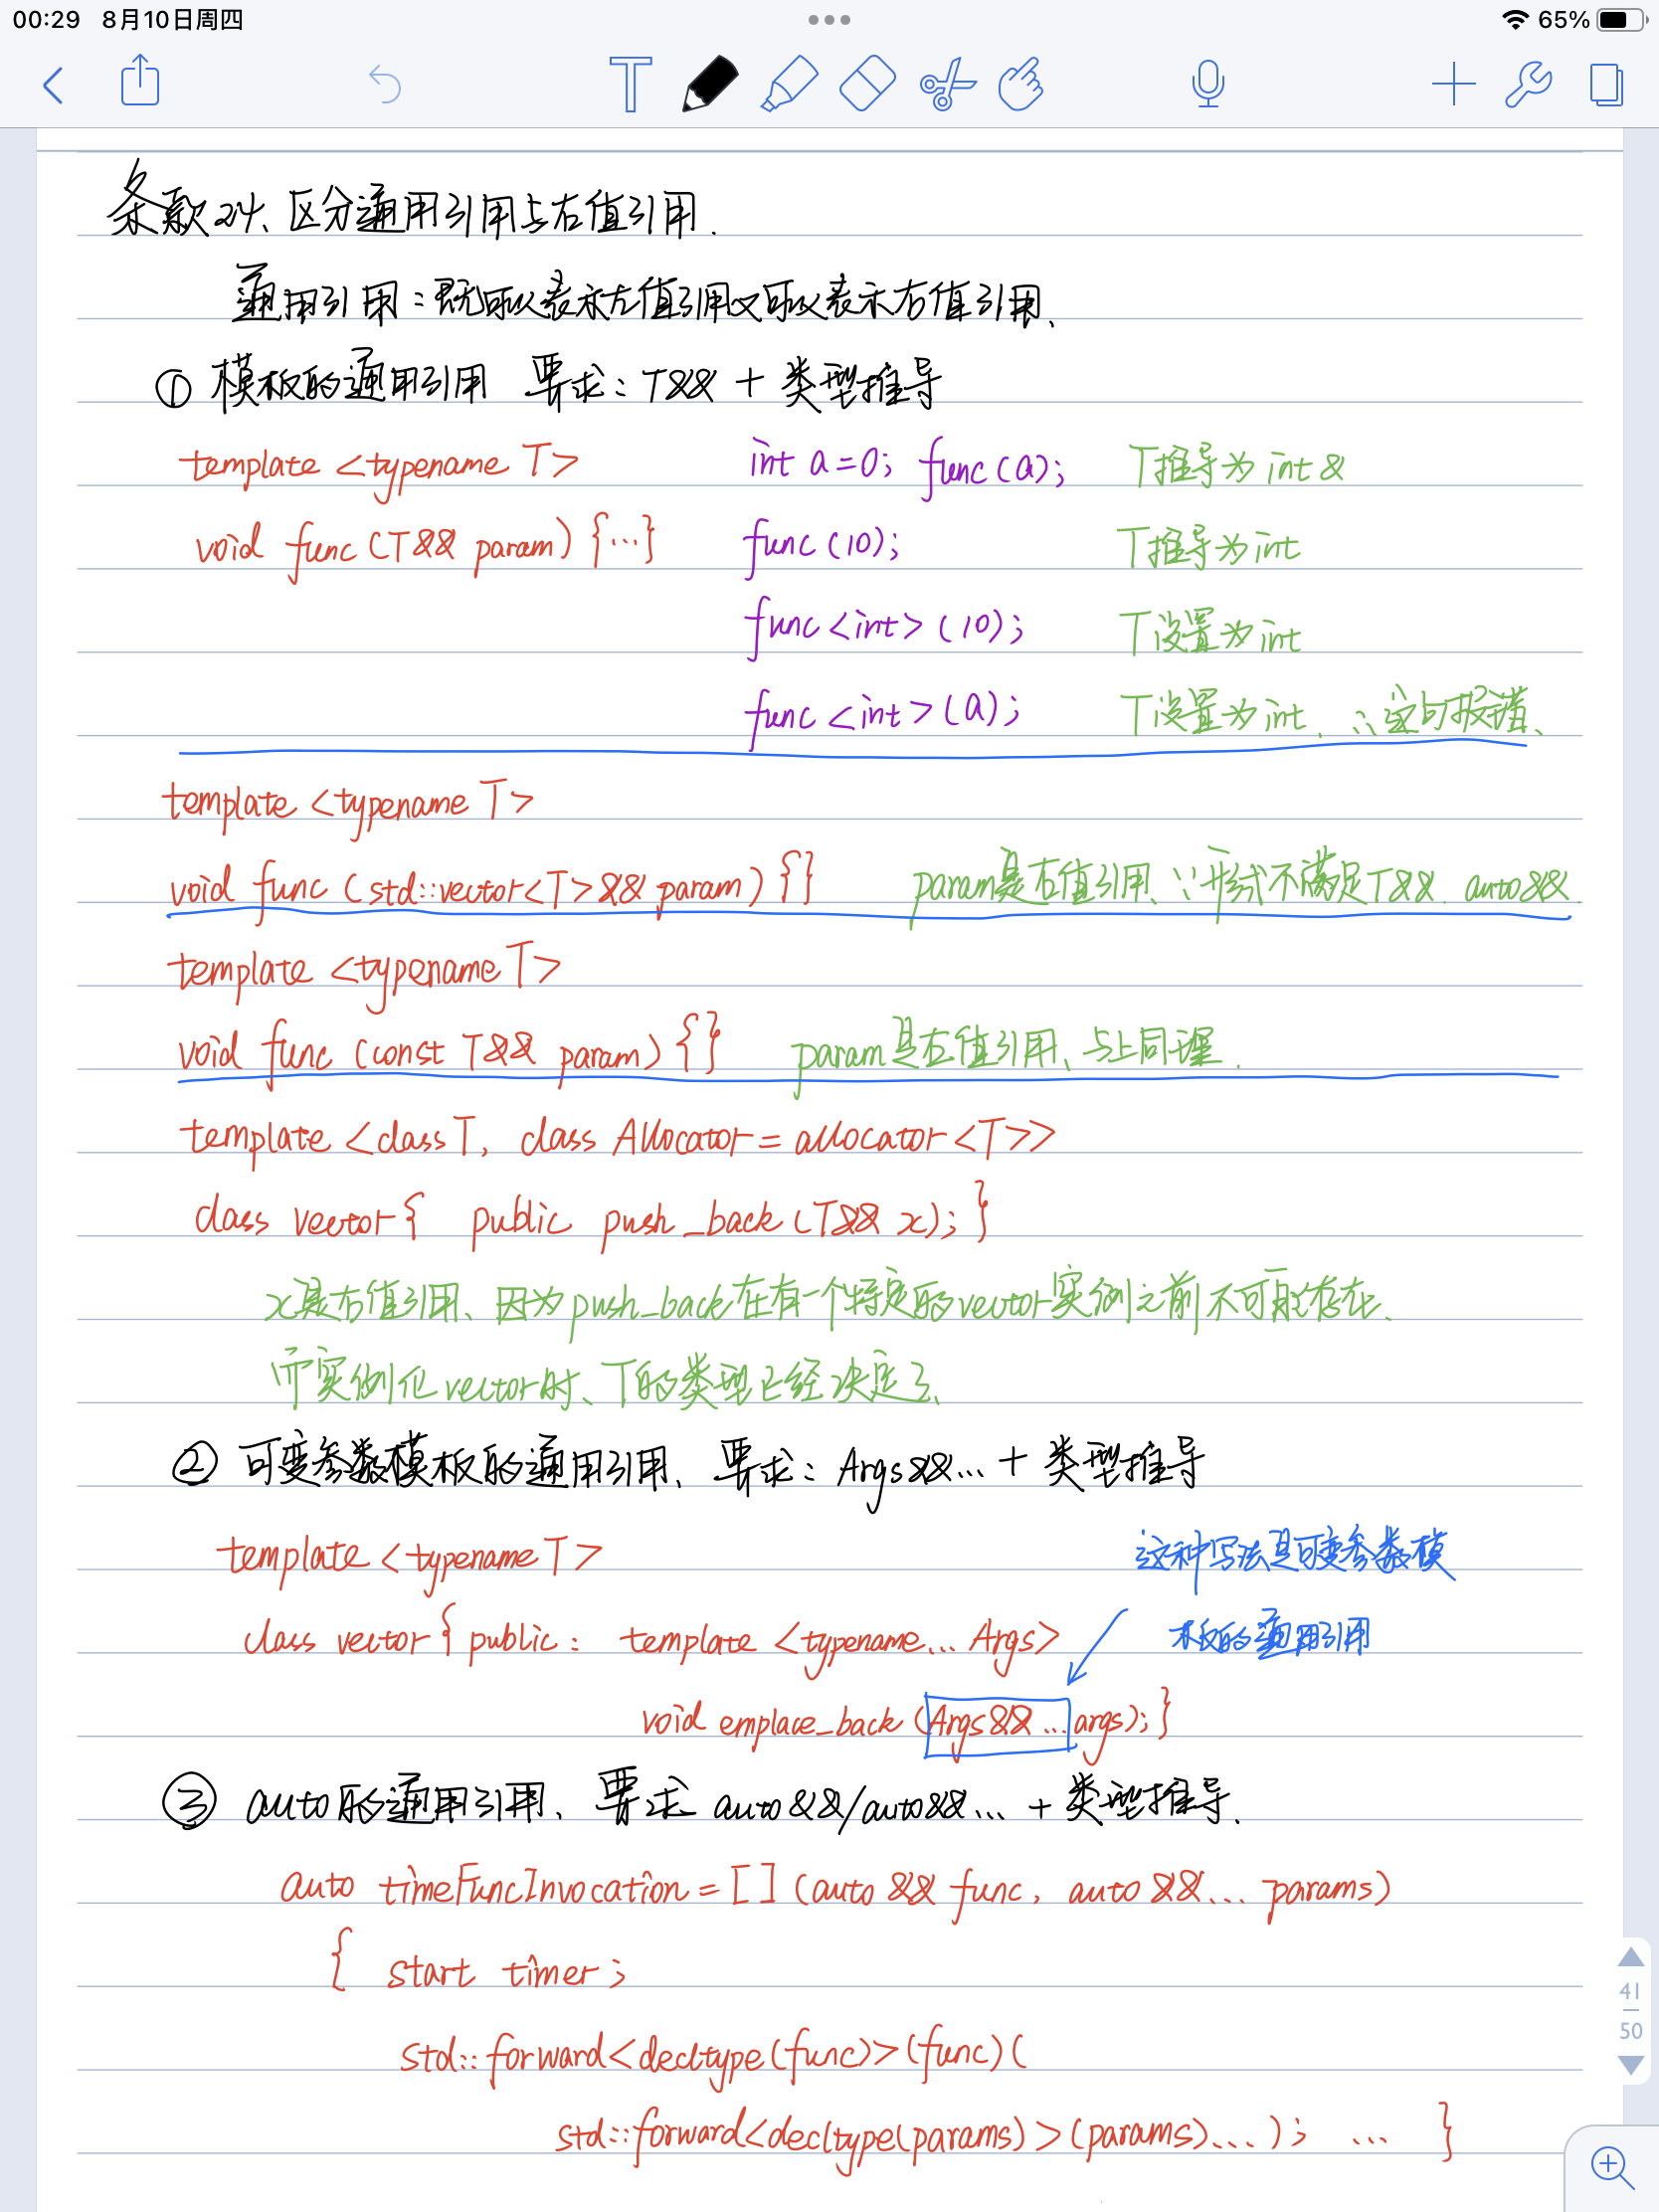 00:29 8月10日周四
65%
条款24、区分通用引用与右值引用.
通用引用：既可以表示左值引用又可以表示右值引用、
① 模板的通用引用 要求：T&& + 类型推导
template <typename T> int a=0; func(a); T推导为int &
void func (T&& param) {...} func(10); T推导为int
func<int>(10); T设置为int
func<int>(a); T设置为int. ∴这句报错、
template <typename T>
void func (std::vector<T>&& param) {} param是右值引用、∵形式不满足T&&. auto&&.
template <typename T>
void func (const T&& param) {} param是右值引用、与上同理.
template <class T, class Allocator = allocator<T>>
class vector{ public push_back(T&& x); }
x是右值引用、因为push_back在有一个特定的vector实例之前不可能存在.
而实例化vector时、T的类型已经决定了、
② 可变参数模板的通用引用、要求：Args&&... + 类型推导
template <typename T> 这种写法是可变参数模
class vector{ public: template <typename... Args> 板的通用引用
void emplace_back(Args&&...args);}
③ auto的通用引用、要求 auto&&/auto&&... + 类型推导.
auto timeFuncInvocation = [] (auto && func, auto &&... params)
{ start timer;
std::forward<decltype(func)>(func)(
std::forward<decltype(params)>(params)...); ... }
41
50